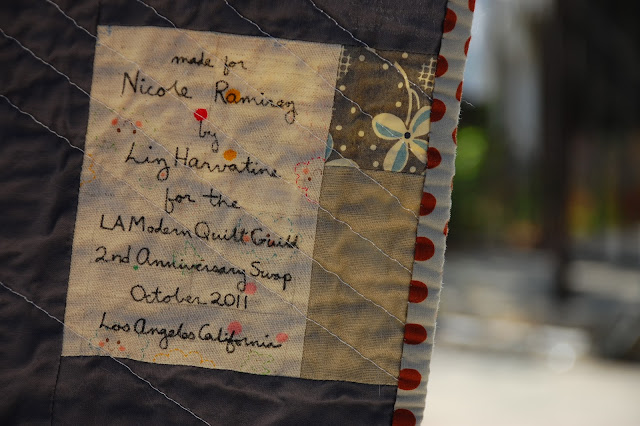 made for
Nicole Ramirez
by
Liz Harvatine
for the
LA Modern Quilt Guild
2nd Anniversary Swap
October 2011
Los Angeles California